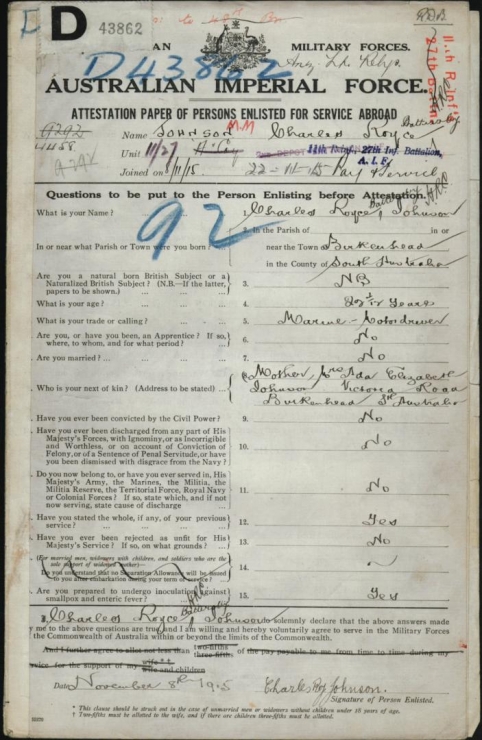 D 43862
AN MILITARY FORCES.
D43862
AUSTRALIAN IMPERIAL FORCE.
11th Reinf
27th Battn
ATTESTATION PAPER OF PERSONS ENLISTED FOR SERVICE ABROAD
9292
4458
9292
Name JOHNSON M.M Charles Royce Battersby
Unit 11/27 11th Reinf. 27th Inf. Battalion, A.I.F.
Joined on 8/11/15. 22-11-15
92
Questions to be put to the Person Enlisting before Attestation.
What is your Name? ... 1. Charles Royce Battersby Johnson
In or near what Parish or Town were you born? ... 2. In the Parish of in or
near the Town of Birkenhead
in the County of South Australia
Are you a natural born British Subject or a
Naturalized British Subject? (N.B.—If the latter,
papers to be shown.) ... 3. NB
What is your age? ... 4. Years
What is your trade or calling? ... 5. Marine - Motordriver
Are you, or have you been, an Apprentice? If so,
where, to whom, and for what period? ... 6. No
Are you married? ... 7. No
Who is your next of kin? (Address to be stated) ... 8. Mother, Mrs Ada Elizabeth
Johnson Victoria Road
Birkenhead Sth Australia
Have you ever been convicted by the Civil Power? 9. No
Have you ever been discharged from any part of His
Majesty's Forces, with Ignominy, or as Incorrigible
and Worthless, or on account of Conviction of
Felony, or of a Sentence of Penal Servitude, or have
you been dismissed with disgrace from the Navy? 10. No
Do you now belong to, or have you ever served in, His
Majesty's Army, the Marines, the Militia, the
Militia Reserve, the Territorial Force, Royal Navy
or Colonial Forces? If so, state which, and if not
now serving, state cause of discharge ... 11. No
Have you stated the whole, if any, of your previous
service? ... 12. Yes
Have you ever been rejected as unfit for His
Majesty's Service? If so, on what grounds? 13. No
(For married men, widowers with children, and soldiers who are the
sole support of widowed mother—
Do you understand that no Separation Allowance will be issued
to you after embarkation during your term of service? 14. ~
Are you prepared to undergo inoculation against
smallpox and enteric fever? ... 15. Yes
Charles Royce Battersby Johnson do solemnly declare that the above answers made
me to the above questions are true, and I am willing and hereby voluntarily agree to serve in the Military Forces
the Commonwealth of Australia within or beyond the limits of the Commonwealth.
And I further agree to allot not less than two-fifths three-fifths of the pay payable to me from time to time during my
service for the support of my wife * † wife and children
Date November 8th 1915 Charles Roy Johnson.
Signature of Person Enlisted.
* This clause should be struck out in the case of unmarried men or widowers without children under 18 years of age.
† Two-fifths must be allotted to the wife, and if there are children three-fifths must be allotted.